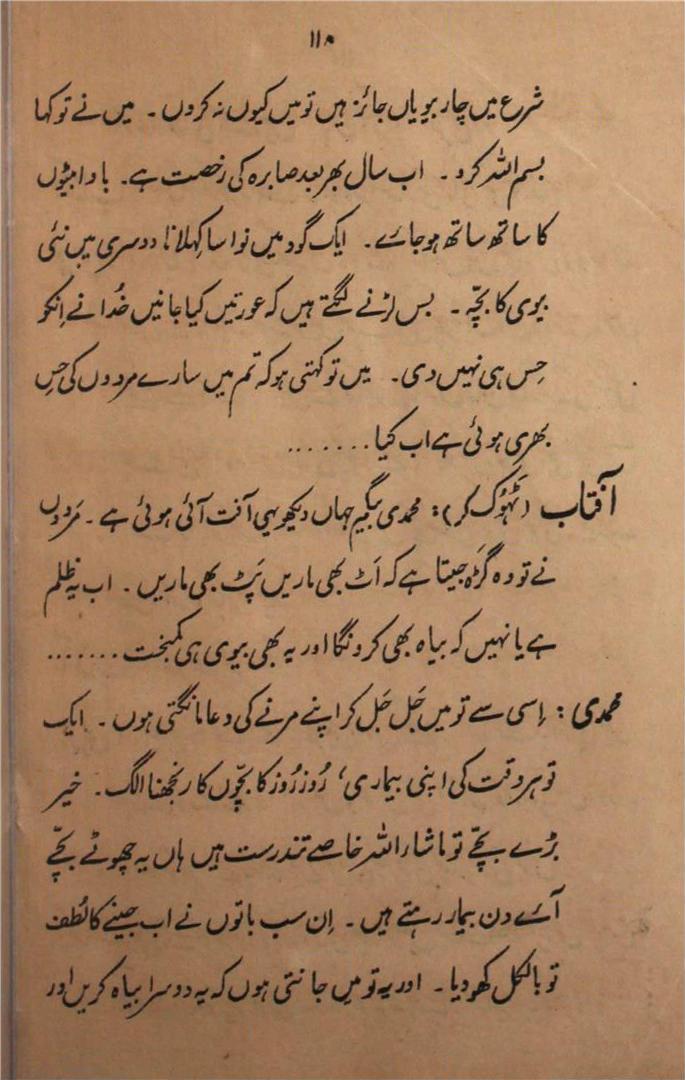 ۱۱۸
شرع میں چار بیویاں جائز ہیں تو میں کیوں نہ کروں۔ میں نے تو کہا
بسم اللہ کرو۔ اب سال بھر بعد صابرہ کی رخصت ہے۔ باوا بیٹیوں
کا ساتھ ساتھ ہو جائے۔ ایک گود میں نواسا کہلانا دوسری میں نئی
بیوی کا بچّہ۔ بس لڑنے لگتے ہیں کہ عورتیں کیا جانیں خُدا نے اِنکو
حِس ہی نہیں دی۔ میں تو کہتی ہو کہ تم میں سارے مردوں کی حِس
بھری ہوئی ہے اب کیا.......
آفتاب (ٹہُوک کر): محمدی بیگم جہاں دیکھو یہی آفت آئی ہوئی ہے۔ مَردوں
نے تو وہ گڑھ جیتا ہے کہ اَٹ بھی ماریں پَٹ بھی ماریں۔ اب یہ ظلم
ہے یا نہیں کہ بیاہ بھی کرونگا اور یہ بھی بیوی ہی کمبخت.......
محمدی: اِسی سے تو میں جَل جَل کر اپنے مرنے کی دعا مانگتی ہوں۔ ایک
تو ہر وقت کی اپنی بیماری، رُوز رُوز کا بچّوں کا رنجھنا الگ۔ خیر
بڑے بچّے تو ماشاراللہ خاصے تندرست ہیں ہاں یہ چھوٹے بچّے
آئے دن بیمار رہتے ہیں۔ اِن سب باتوں نے اب جینے کا لُطف
تو بالکل کھو دیا۔ اور یہ تو میں جانتی ہوں کہ یہ دوسرا بیاہ کریں اور